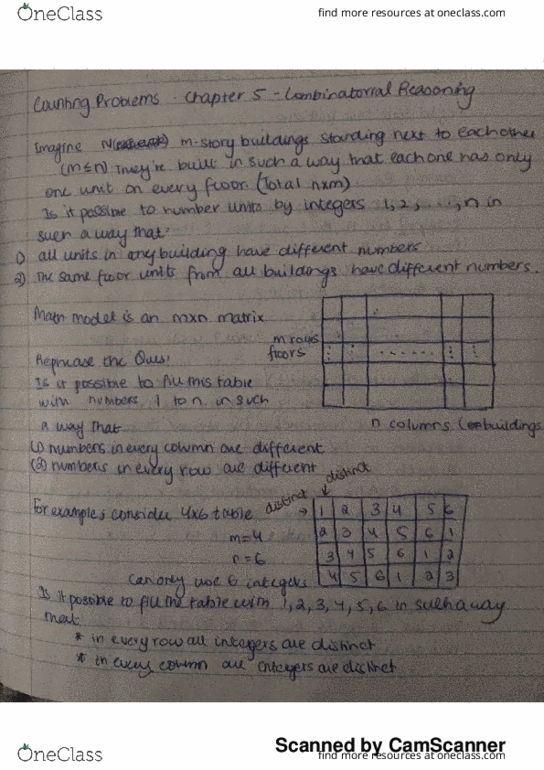 OneClass
find more resources at oneclass.com
Counting Problems - Chapter 5 - Combinatorial Reasoning
Imagine N m-story buildings standing next to each other
(m≤n) They're built in such a way that each one has only
one unit on every floor (Total nxm)
Is it possible to number units by integers 1, 2, ..., n in
such a way that:
1) all units in any building have different numbers
2) The same floor units from all buildings have different numbers.
Math model is an mxn matrix
m rows
floors
Rephrase the Ques:
Is it possible to fill this table
with numbers 1 to n in such
a way that
n columns buildings
(1) numbers in every column are different
(2) numbers in every row are different
distinct
distinct
For example, consider 4x6 table
m=4
n=6
can only use 6 integers
1 2 3 4 5 6
2 3 4 5 6 1
3 4 5 6 1 2
4 5 6 1 2 3
Is it possible to fill the table with 1, 2, 3, 4, 5, 6 in such a way
that
* in every row all integers are distinct
* in every column all integers are distinct
Scanned by CamScanner
OneClass
find more resources at oneclass.com